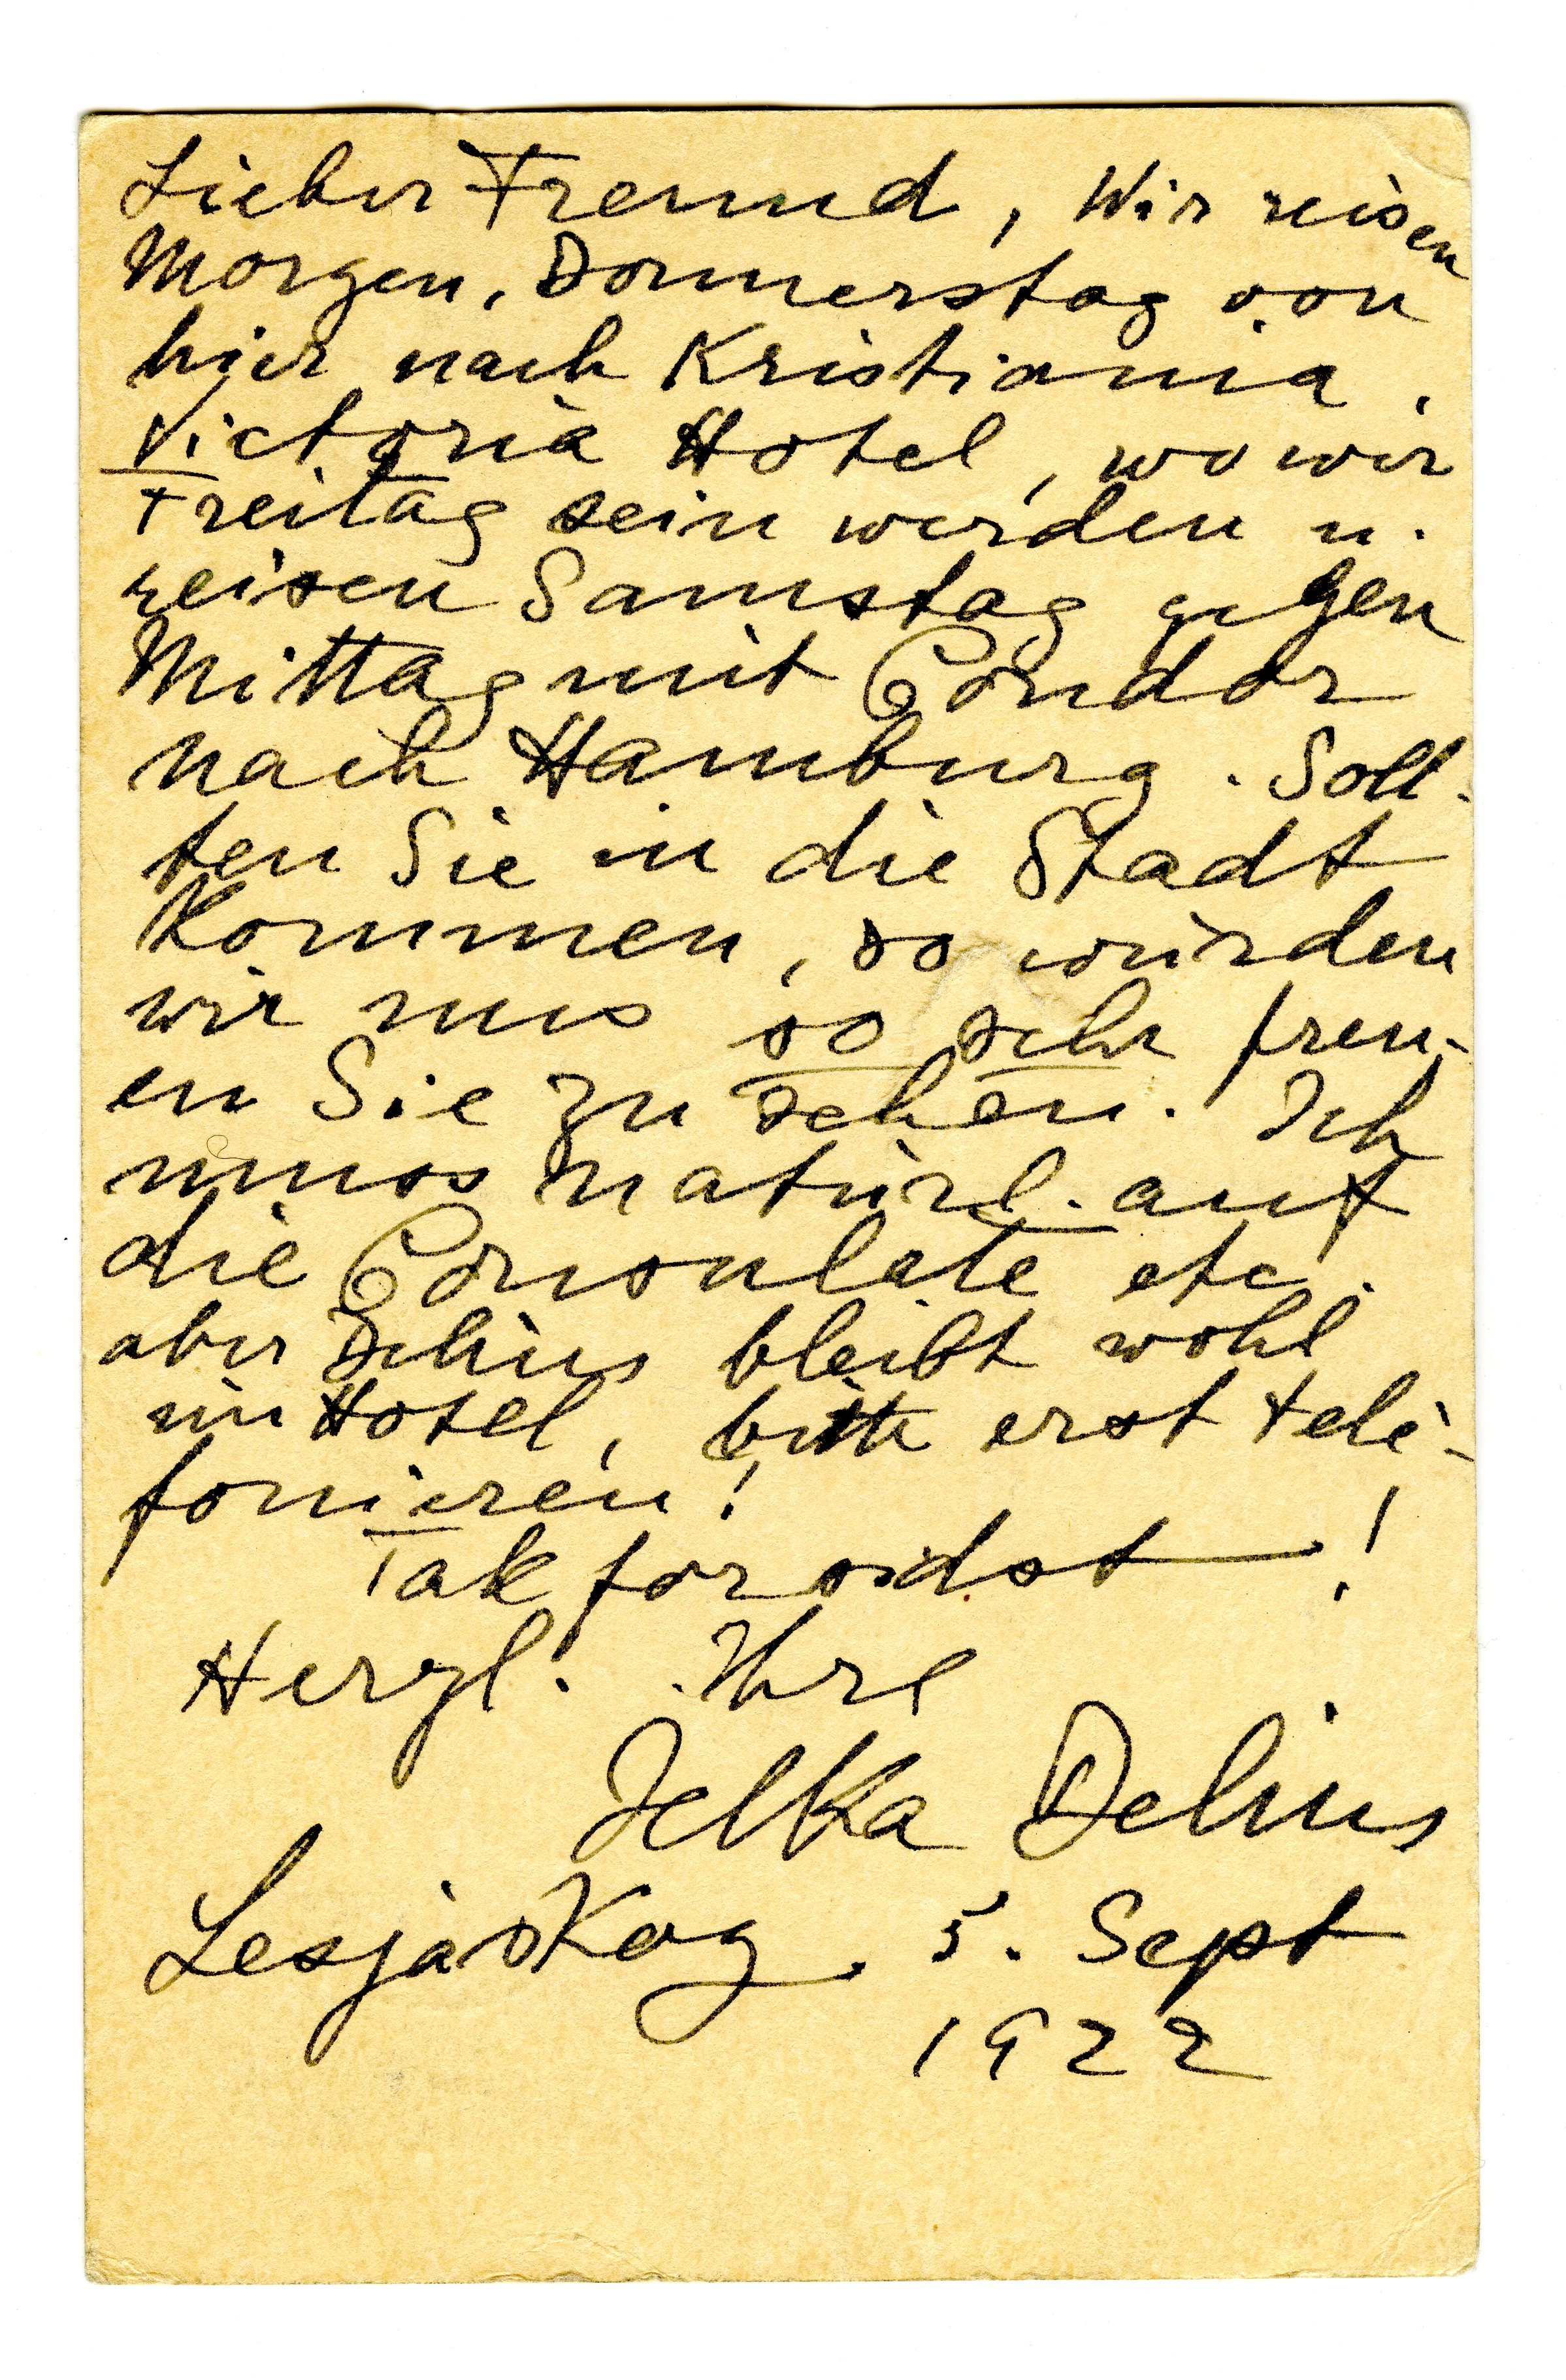 Lieber Freund, Wir reisen
Morgen, Donnerstag von
hier nach Kristiania,
Victoria Hotel, wo wir
Freitag sein werden u.
reisen Samstag gegen
Mittag mit Condor
nach Hamburg. Soll-
ten Sie in die Stadt
Kommen, so würden
wir uns so sehr freu-
en Sie zu sehen. Ich
muss natürl. auf
die Consulate etc.
aber Delius bleibt wohl
im Hotel, bitte erst tele-
fonieren!
Tak for sidst!
Herzl. Ihre
Jelka Delius
Lesjaskog. 5. Sept
1922